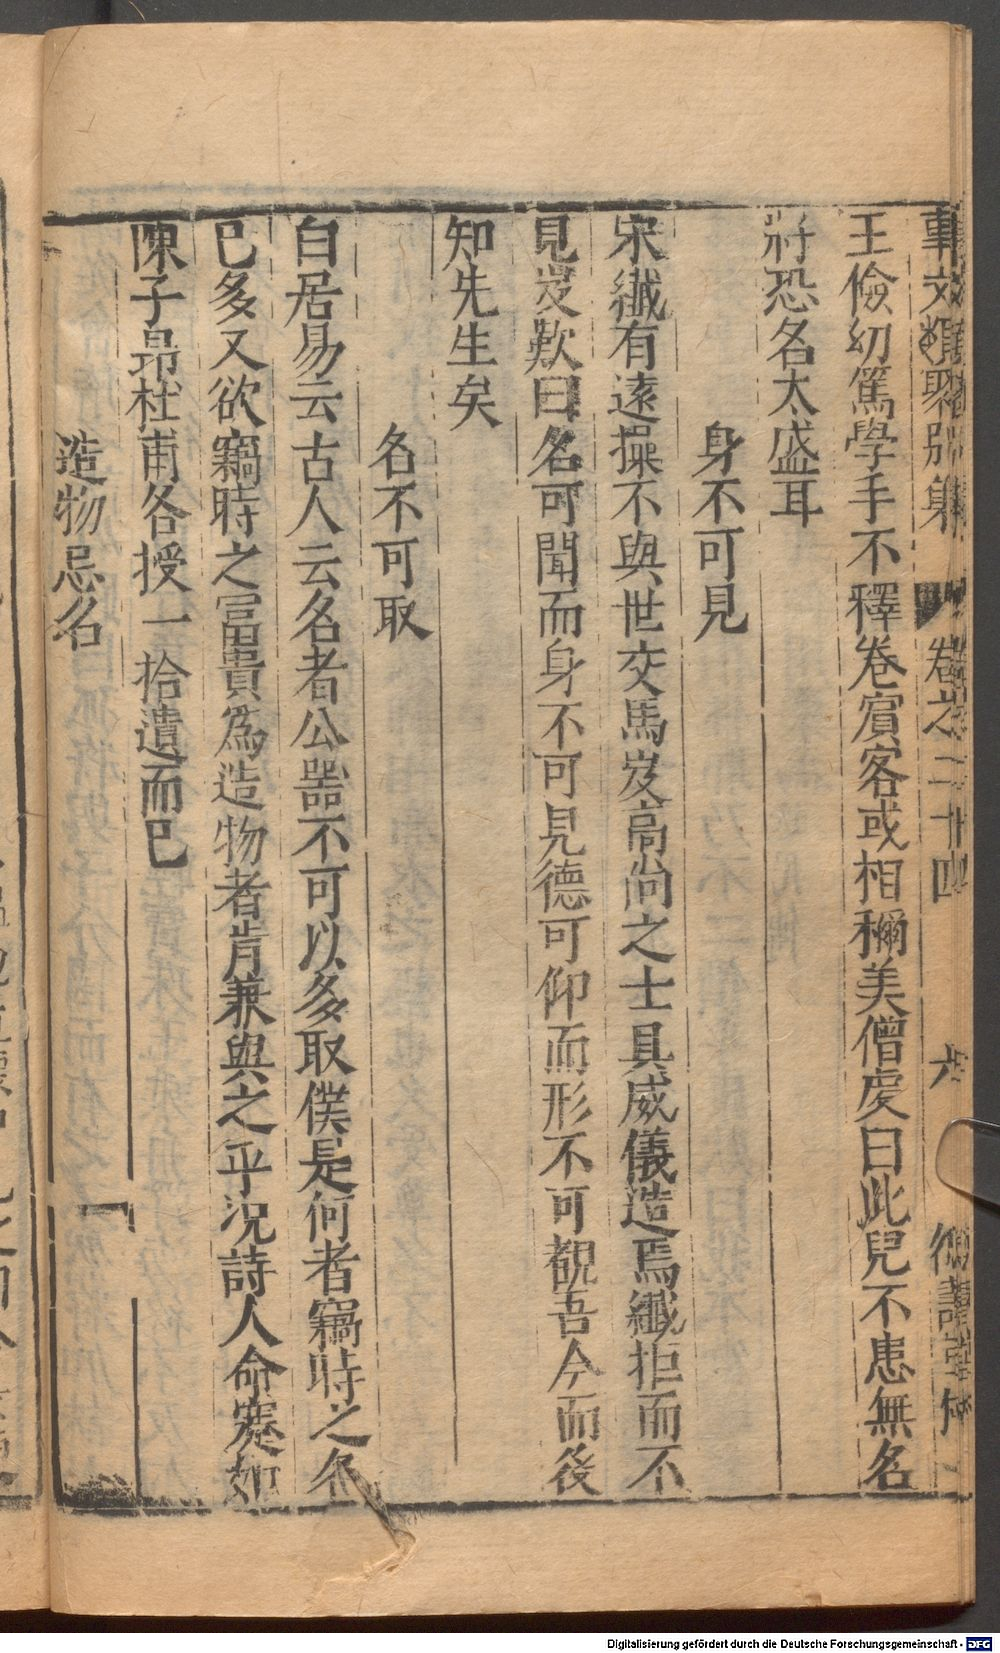 事文類聚別集 卷之二十四 六
王儉幼篤學手不釋卷賓客或相稱美僧虔曰此兒不患無名
將恐名太盛耳
身不可見
宋纖有遠操不與世交馬岌高尚之士具威儀造焉纖拒而不
見岌歎曰名可聞而身不可見德可仰而形不可覩吾今而後
知先生矣
名不可取
白居易云古人云名者公器不可以多取僕是何者竊時之名
已多又欲竊時之富貴爲造物者肯兼與之乎況詩人命蹇如
陳子昂杜甫各授一拾遺而已
造物忌名
Digitalisierung gefördert durch die Deutsche Forschungsgemeinschaft - DFG